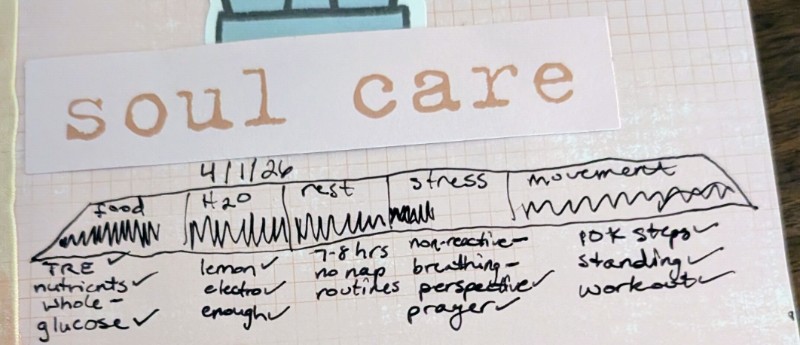 soul care
4/1/26
food H20 rest stress movement
TRE ✓
nutrients ✓
whole -
glucose ✓
lemon ✓
electro ✓
enough ✓
7-8 hrs
no nap
routines
non-reactive -
breathing -
perspective ✓
prayer ✓
10K steps ✓
standing ✓
workout ✓